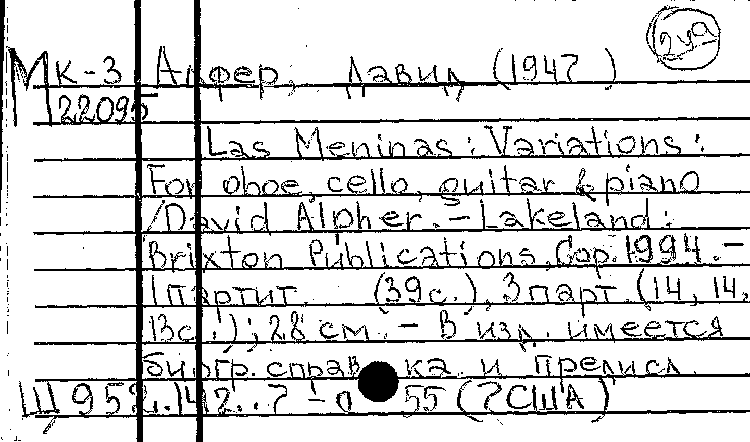 Мк-3 Алфер, Давид (1947 )
2ya
22095
Las Meninas: Variations:
For oboe, cello, guitar & piano
/David Alpher. - Lakeland:
Brixton Publications, Cop. 1994. -
1 партит. (39с.), 3 парт. (14, 14,
13с.); 28 см. - В изд. имеется
биогр. справка и предисл.
Щ952.142..7 55 (7США)